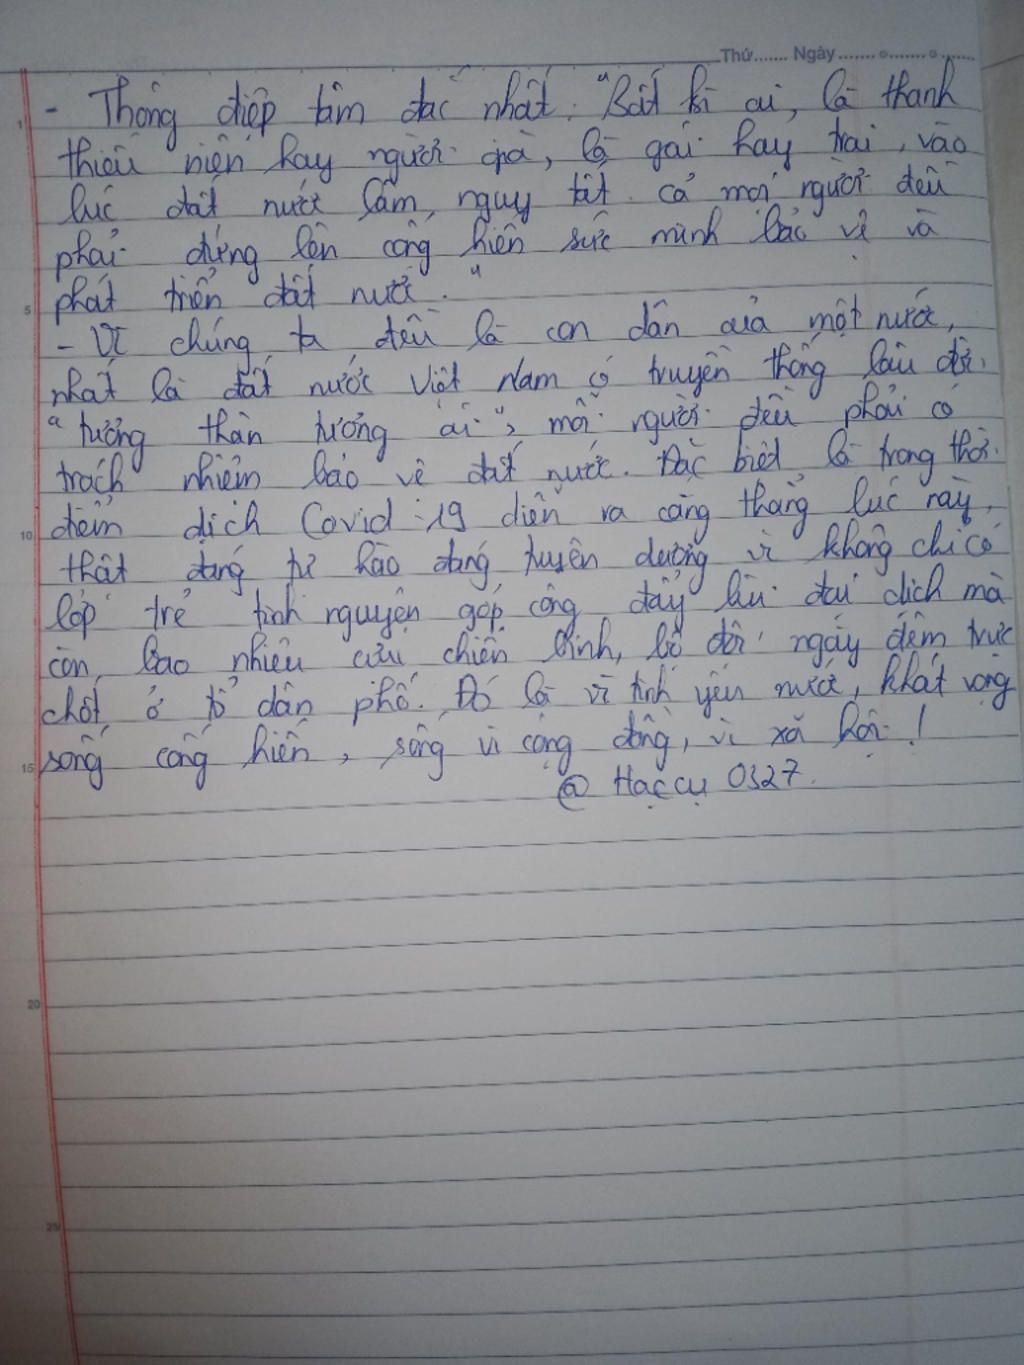 Thứ....... Ngày ....... o ....... o .......
- Thông điệp tâm đắc nhất: "Bất kì ai, là thanh
thiếu niên hay người già, là gái hay trai, vào
lúc đất nước lâm nguy tất cả mọi người đều
phải đứng lên cống hiến sức mình bảo vệ và
5 phát triển đất nước."
- Vì chúng ta đều là con dân của một nước,
nhất là đất nước Việt Nam có truyền thống lâu đời
"tương thân tương ái", mỗi người đều phải có
trách nhiệm bảo vệ đất nước. Đặc biệt là trong thời
10 điểm dịch Covid-19 diễn ra căng thẳng lúc này,
thật đáng tự hào đáng tuyên dương vì không chỉ có
lớp trẻ tình nguyện góp công đẩy lùi đại dịch mà
còn bao nhiêu cựu chiến binh, bộ đội ngày đêm trực
chốt ở tổ dân phố. Đó là vì tình yêu nước, khát vọng
15 sống cống hiến, sống vì cộng đồng, vì xã hội!
@ Haccu 0327.
20
25